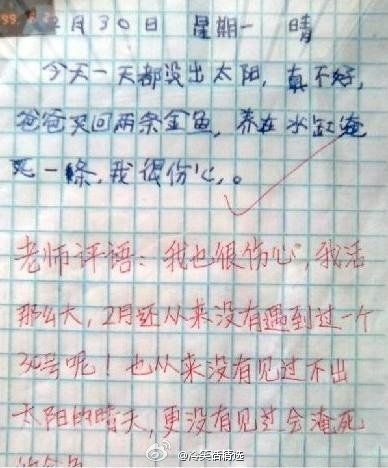 2月30日 星期一 晴
今天一天都没出太阳,真不好,
爸爸买回两条金鱼,养在水缸淹
死一條,我很伤心,。
老师评语:我也很伤心,我活
那么大,2月还从来没有遇到过一个
30号呢!也从来没有见过不出
太阳的晴天,更没有见过会淹死
的金鱼
@冷笑话精选